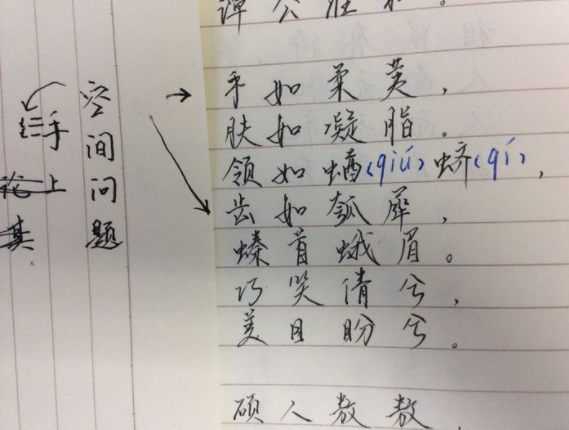 谭公维私。
手如柔荑，
肤如凝脂。
领如蝤(qiú)蛴(qí)，
齿如瓠犀，
螓首蛾眉。
巧笑倩兮，
美目盼兮。
硕人敖敖，
空间问题
手上